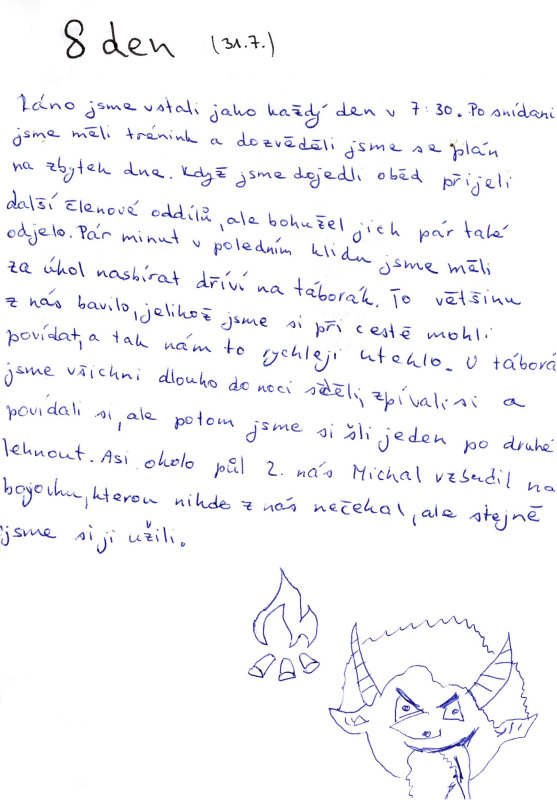 8 den (31.7.)
Ráno jsme vstali jako každý den v 7:30. Po snídani
jsme měli trénink a dozvěděli jsme se plán
na zbytek dne. Když jsme dojedli oběd přijeli
další členové oddílů, ale bohužel jich pár také
odjelo. Pár minut v poledním klidu jsme měli
za úkol nasbírat dříví na táborák. To většinu
z nás bavilo, jelikož jsme si při cestě mohli
povídat, a tak nám to rychleji uteklo. U táborá
jsme všichni dlouho do noci seděli, zpívali si a
povídali si, ale potom jsme si šli jeden po druhé
lehnout. Asi okolo půl 2. nás Michal vzbudil na
bojovku, kterou nikdo z nás nečekal, ale stejně
jsme si ji užili.